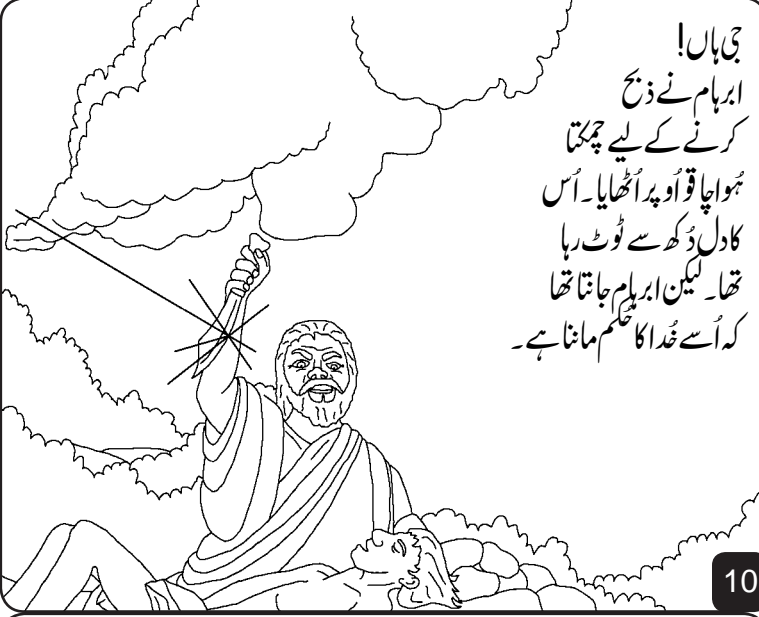 جی ہاں!
ابرہام نے ذبح
کرنے کے لیے چمکتا
ہُوا چاقو اُوپر اُٹھایا۔ اُس
کا دل دُکھ سے ٹوٹ رہا
تھا۔ لیکن ابرہام جانتا تھا
کہ اُسے خُدا کا حُکم ماننا ہے۔
10